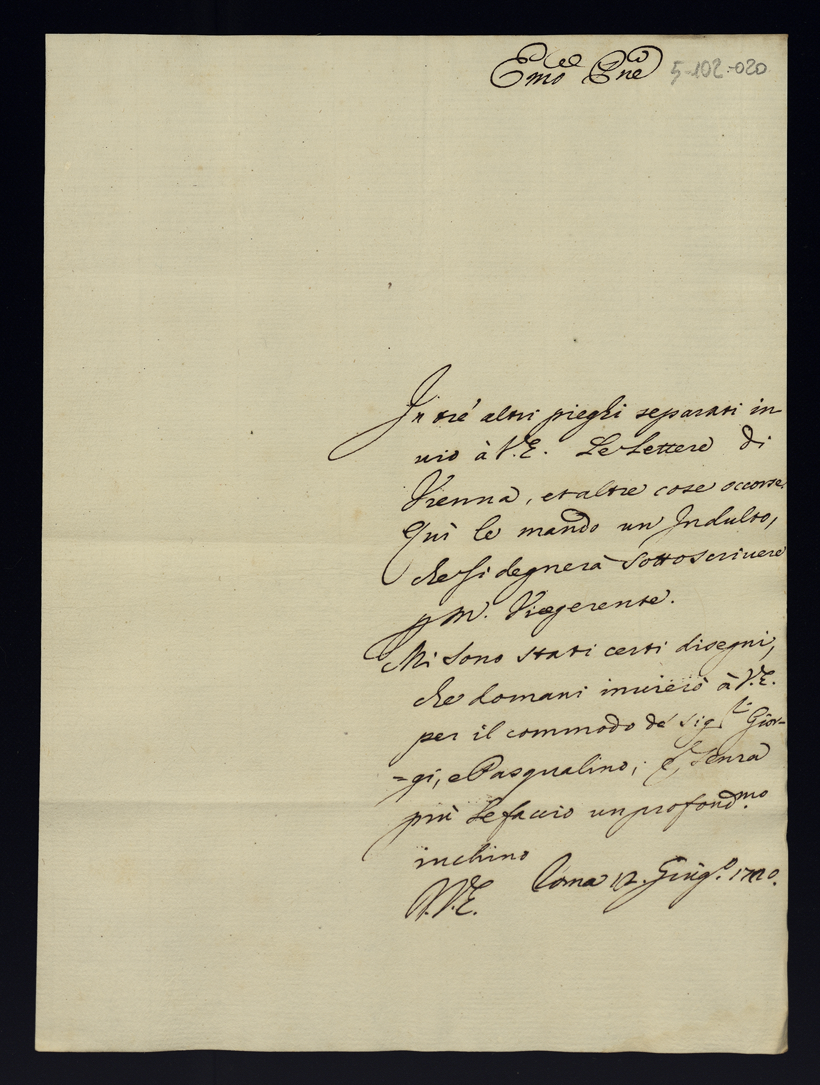 Emo Pne 5-102-020
In trè altri pieghi separati in-
vio à V.E. Le Lettere di
Vienna, et altre cose occorse.
Quì le mando un Indulto,
che si degnerà sottoscrivere
Vicegerente.
Mi sono stati certi disegni,
che domani invierò à V.E.
per il commodo de sig.ri Gior-
-gi, e Pasqualino; e senza
più Le faccio un profond.mo
inchino
Roma 12. Giug.o